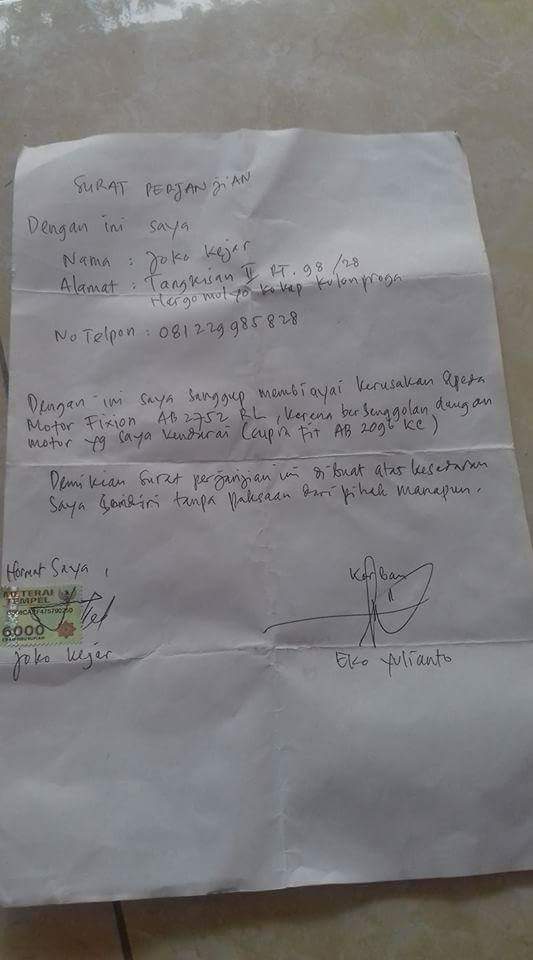 SURAT PERJANJIAN
Dengan ini saya
Nama : Joko Kejar
Alamat : Tangkisan II RT. 98 /28
Hargomulyo Kokap Kulonprogo
No Telpon : 081229985828
Dengan ini saya sanggup membiayai kerusakan Speda
Motor Fixion AB 2752 RL, kerena bersenggolan dengan
motor yg saya kendarai (Supra Fit AB 2096 KC)
Demikian surat perjanjian ini dibuat atas kesadaran
saya sendiri tanpa paksaan dari pihak manapun.
Hormat Saya,
Korban
METERAI
TEMPEL
6000
ENAM RIBU RUPIAH
Joko Kejar
Eko Yulianto